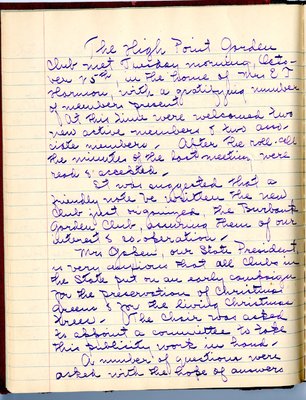 The High Point Garden
Club met Tuesday morning, Octo-
ber 25th, in the home of Mrs E. T.
Harmon, with a gratifying number
of members present.
At this time were welcomed two
new active members & two asso-
ciate members. After the roll call
the minutes of the last meeting were
read & accepted.
It was suggested that a
friendly note be written the new
Club just organized, the Burbank
Garden Club, assuring them of our
interest & co-operation.
Mrs our State President
is very anxious that all Clubs in
the State put on an early campaign
for the preservation of Christmas
Greens & for the living Christmas
trees. The Chair was asked
to appoint a committee to take
this publicity work in hand.
A number of questions were
asked with the hope of answers